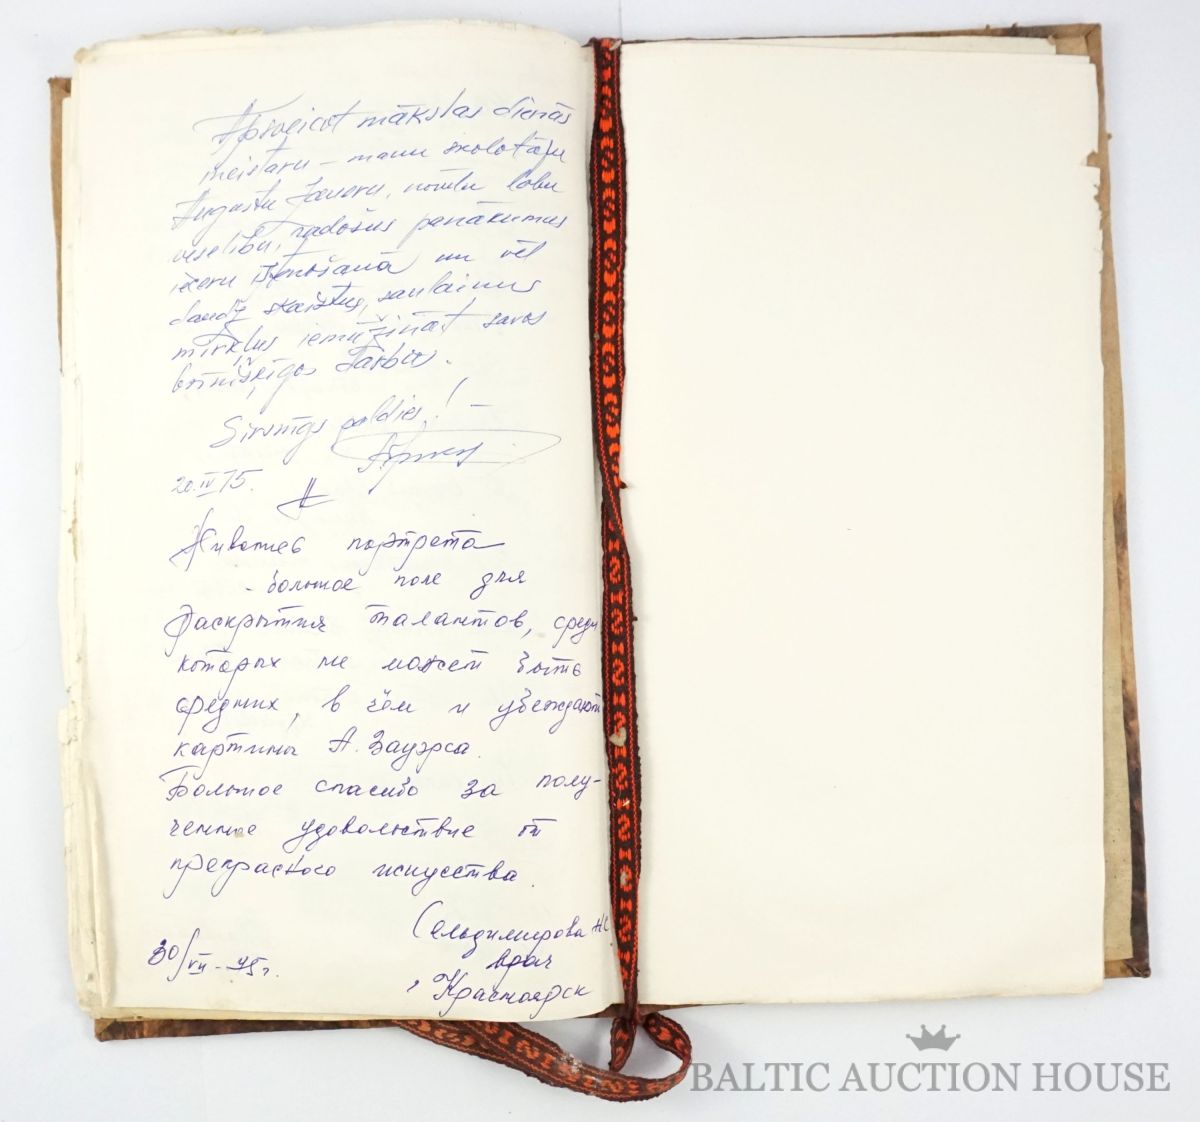 Apsveicot mākslas dienās
meistaru – manu skolotāju
Augustu Zaueru, novēlu labu
veselību, radošus panākumus
ieceru īstenošanā un vēl
daudz skaistus, saulainus
mirkļus iemūžināt savos
brīnišķīgos darbos.
Sirsnīgs paldies! –
20.IV 75.
Живопись портрета
- большое поле для
раскрытия талантов, среди
которых не может быть
средних, в чём и убеждают
картины А. Зауэрса.
Большое спасибо за полу-
ченное удовольствие от
прекрасного искусства.
Сельдимирова НС
врач
30/VII – 75 г.
г Красноярск
BALTIC AUCTION HOUSE